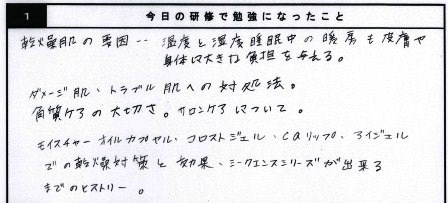 1 今日の研修で勉強になったこと
乾燥肌の要因‥ 温度と湿度睡眠中の暖房も皮膚や
身体に大きな負担を与える。
ダメージ肌、トラブル肌への対処法。
角質ケアの大切さ。サロンケアについて。
モイスチャーオイルカプセル、コロストジェル、CQリップ、アイジェル
での乾燥対策と効果、シークエンスシリーズが出来る
までのヒストリー。